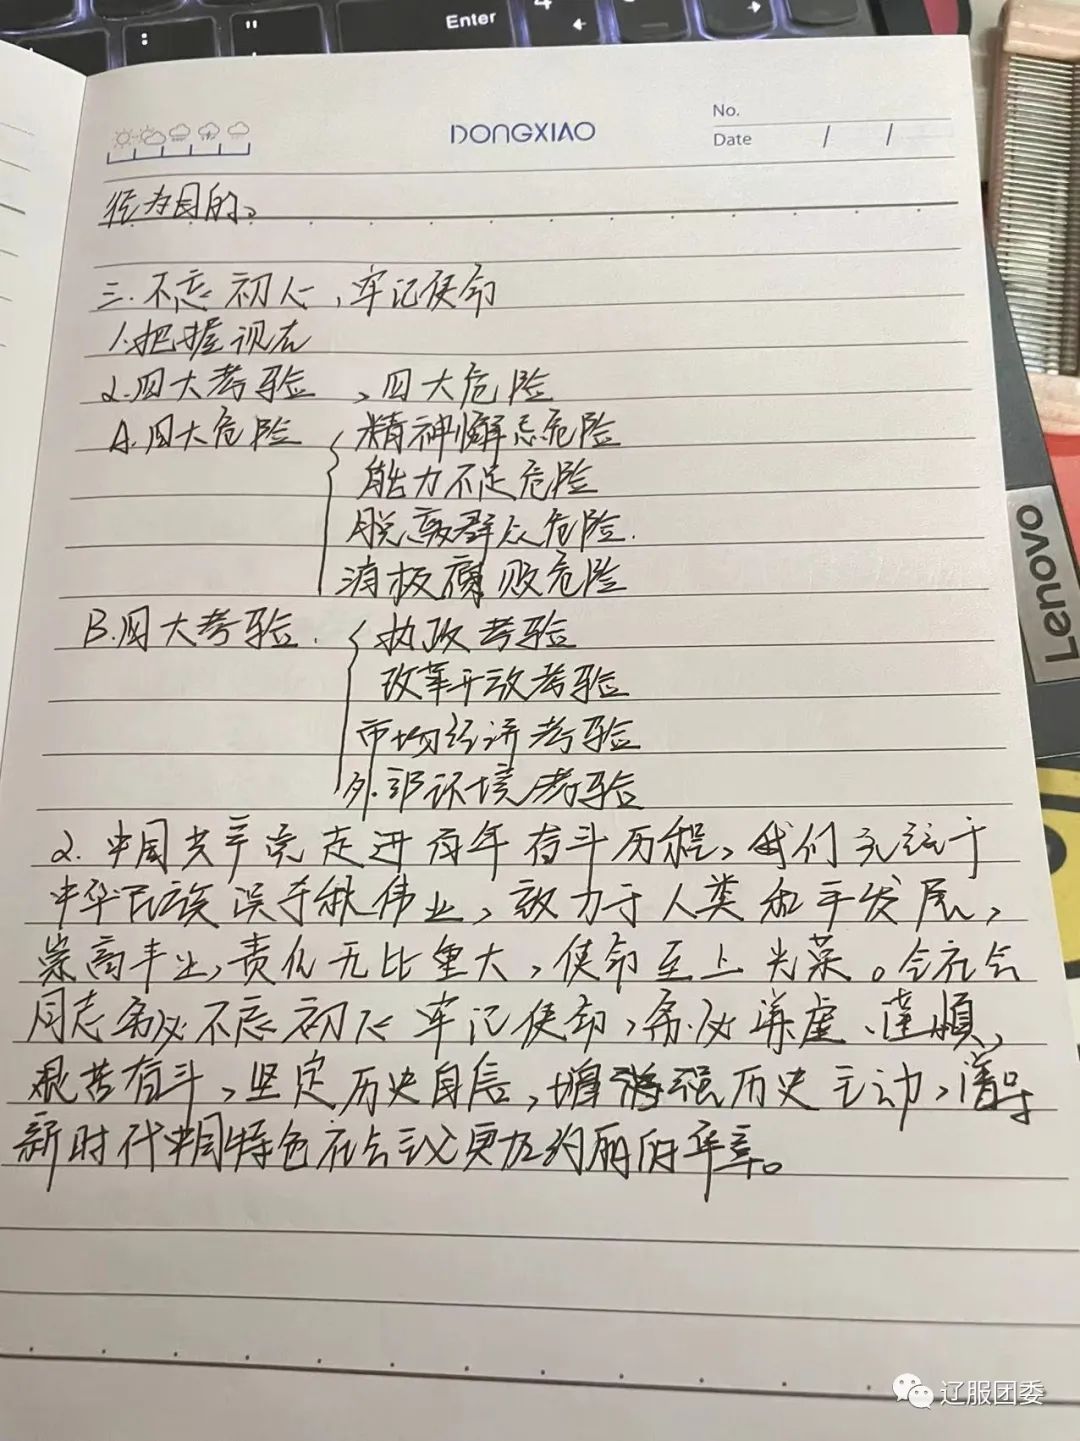 Enter
DONGXIAO
No.
Date / /
径为目的。
三.不忘初心,牢记使命
1.把握现在
2.四大考验、四大危险
A.四大危险 精神懈怠危险
能力不足危险
脱离群众危险.
消极腐败危险
B.四大考验. 执政考验
改革开放考验
市场经济考验
外部环境考验
2.中国共产党走进百年奋斗历程,我们立志于
中华民族千秋伟业,致力于人类和平发展,
崇高事业,责任无比重大,使命至上光荣。全社会
同志务必不忘初心牢记使命,务必谦虚、谨慎,
艰苦奋斗,坚定历史自信,增强历史主动,谱写
新时代中国特色社会主义更加绚丽的华章。
Lenovo
辽服团委